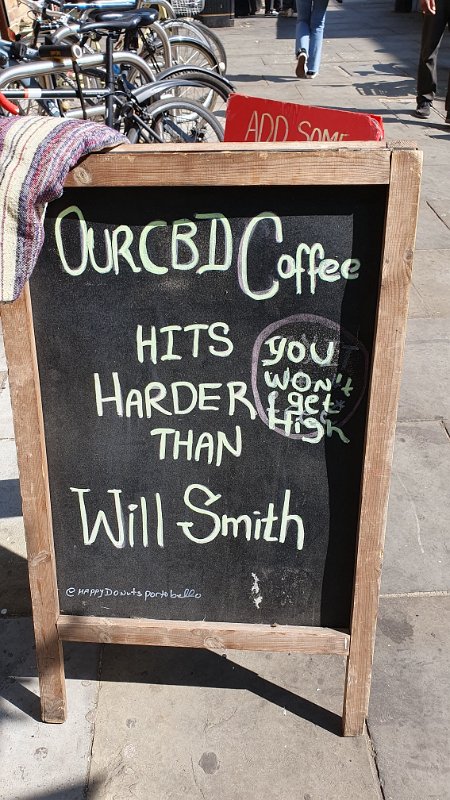 ADD SOME
OUR CBD Coffee
HITS
HARDER
THAN
Will Smith
you
won't
get
High
@HAPPYDONUTSportobello